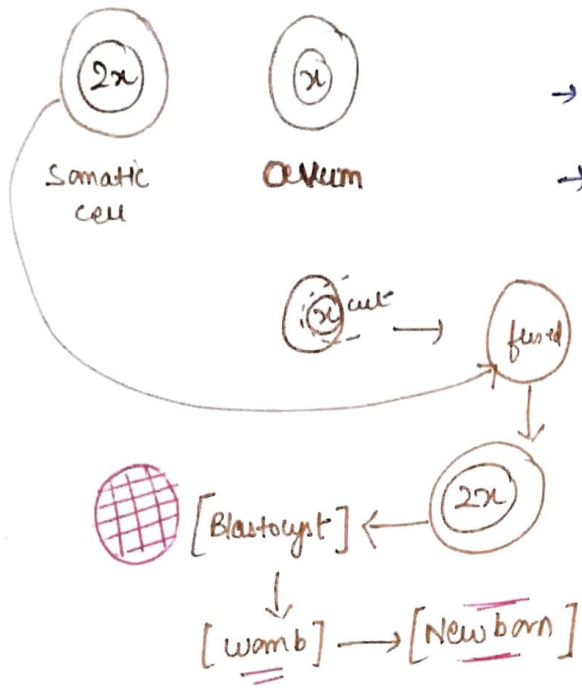 2x x
→
Somatic Ovum →
cell
x cut → fused
2x
[Blastocyst] ←
[Womb] → [New born]